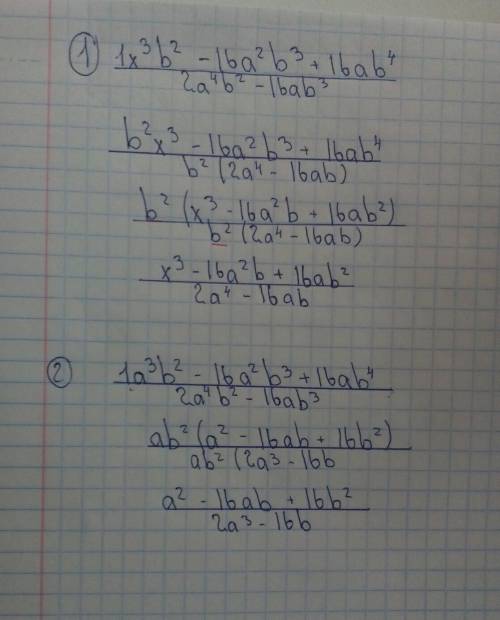 1) 1x³b² - 16a²b³ + 16ab⁴
2a⁴b² - 16ab³
b²x³ - 16a²b³ + 16ab⁴
b² (2a⁴ - 16ab)
b² (x³ - 16a²b + 16ab²)
b² (2a⁴ - 16ab)
x³ - 16a²b + 16ab²
2a⁴ - 16ab
2 1a³b² - 16a²b³ + 16ab⁴
2a⁴b² - 16ab³
ab² (a² - 16ab + 16b²)
ab² (2a³ - 16b
a² - 16ab + 16b²
2a³ - 16b